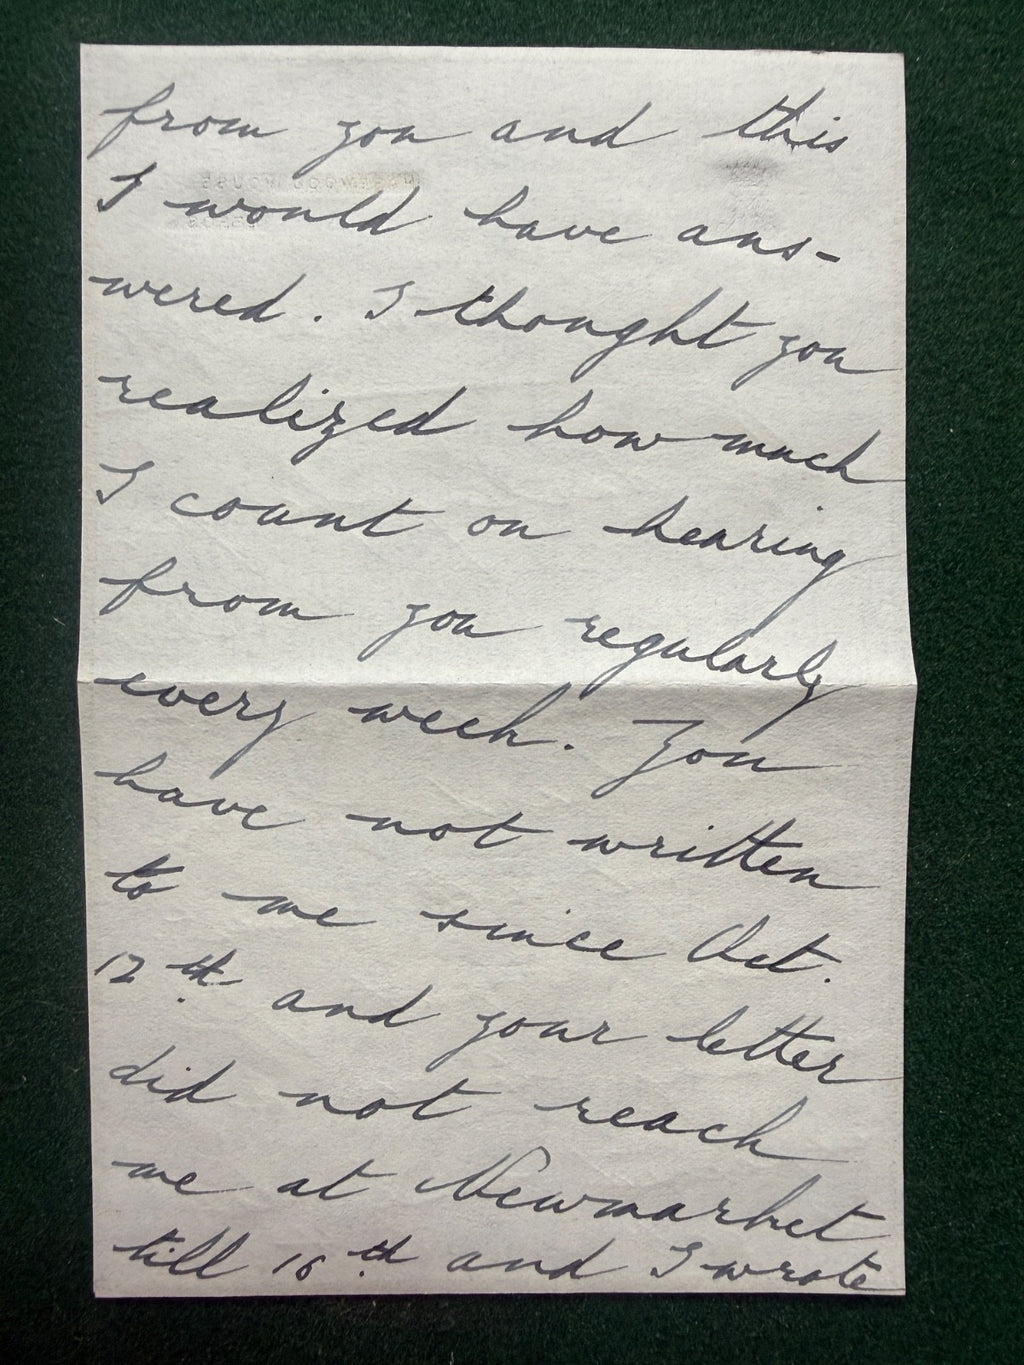 from you and this
I would have ans-
wered. I thought you
realized how much
I count on hearing
from you regularly
every week. You
have not written
to me since Oct.
12th and your letter
did not reach
me at Newmarket
till 16th and I wrote